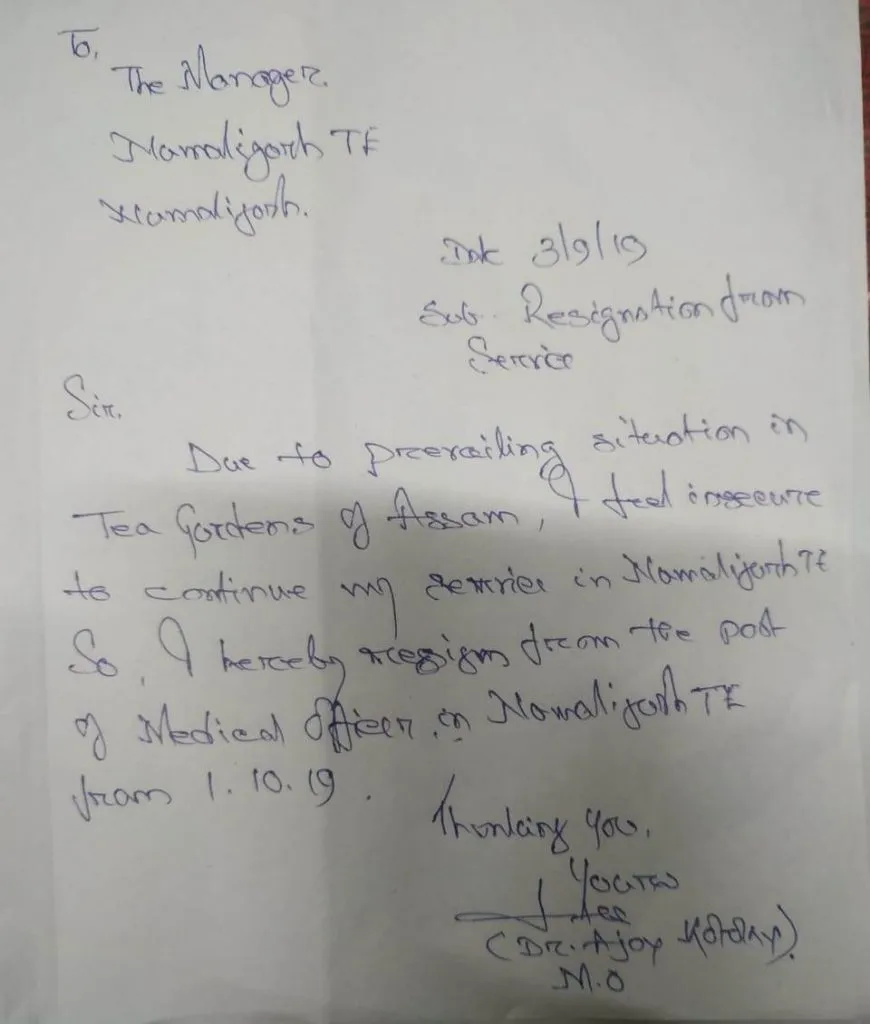 To,
The Manager.
Numaligarh TE
Numaligarh.
Date 3/9/19
Sub. Resignation from
Service
Sir.
Due to prevailing situation in
Tea Gardens of Assam, I feel insecure
to continue my service in Numaligarh TE
So, I hereby resign from the post
of Medical Officer, in Numaligarh TE
from 1.10.19.
Thanking you.
Yours
(Dr. Ajoy
M.O